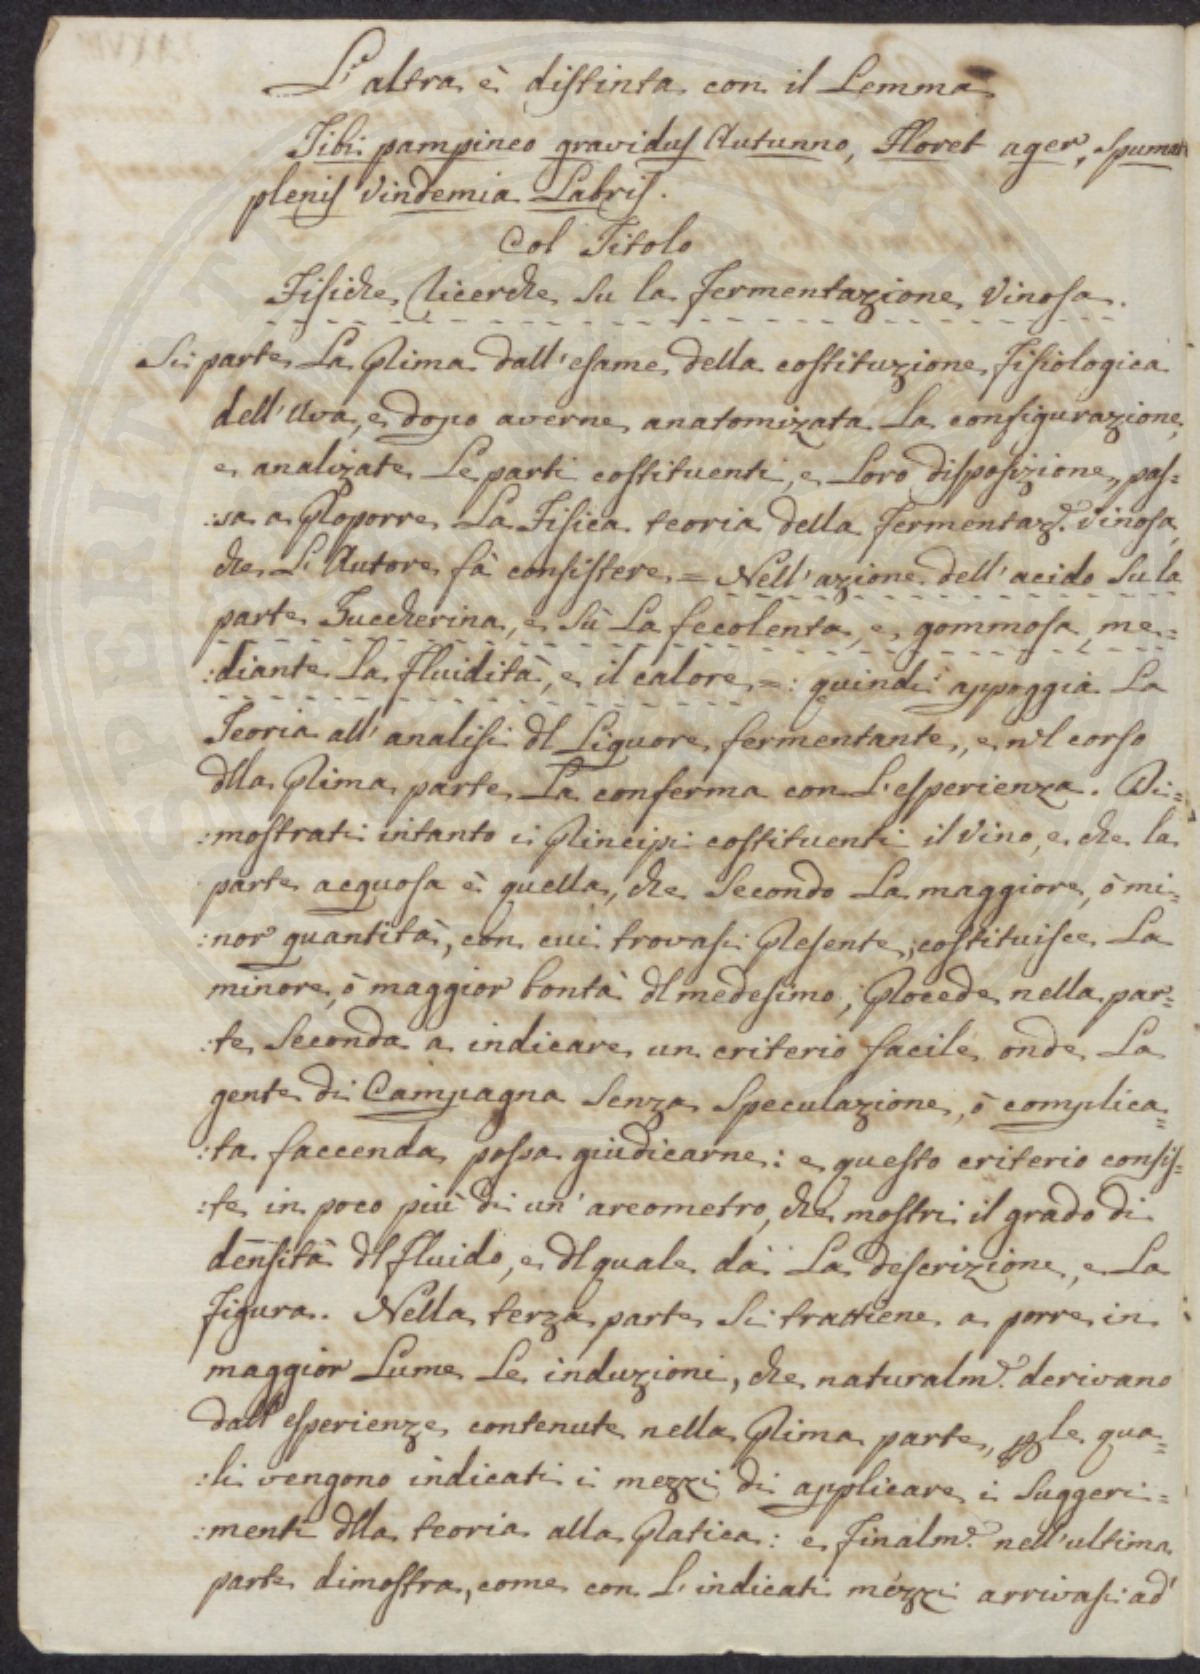 L'altra è distinta con il Lemma
Tibi pampineo gravidus Autunno, Floret ager, spumat
plenis vindemia Labris.
Col Titolo
Fisiche Ricerche Su la fermentazione Vinosa.
Si parte La Prima dall'esame della costituzione fisiologica
dell'Uva, e dopo averne anatomizata La configurazione,
e analizate Le parti costituenti, e Loro disposizione, pas=
:sa a Proporre La Fisica teoria della fermentaz.e vinosa,
che L'Autore fà consistere = Nell'azione dell'acido Su la
parte Zuccherina, e Sù La fecolenta, e gommosa, me=
:diante La fluidità, e il calore =: quindi appoggia La
Teoria all'analisi dl Liquore fermentante, e nel corso
dlla Prima parte La conferma con L'esperienza. Di=
:mostrati intanto i Principi costituenti il Vino, e che la
parte acquosa è quella, che Secondo La maggiore, ò mi=
:nor quantità, con cui trovasi Presente, costituisce La
minore, ò maggior bontà dl medesimo, Procede nella par=
:te Seconda a indicare un criterio facile onde La
gente di Campagna Senza Speculazione, ò complica=
:ta faccenda possa giudicarne: e questo criterio consis=
:te in poco più di un'areometro, che mostri il grado di
densità dl fluido, e dl quale dà La descrizione, e La
figura. Nella terza parte Si trattiene a porre in
maggior Lume Le induzioni, che naturalm.e derivano
dall'esperienze contenute nella Prima parte, p le qua=
:li vengono indicati i mezzi di applicare i Suggeri=
:menti dlla teoria alla Pratica: e finalm.e nell'ultima
parte dimostra, come con L'indicati mezzi arrivasi ad